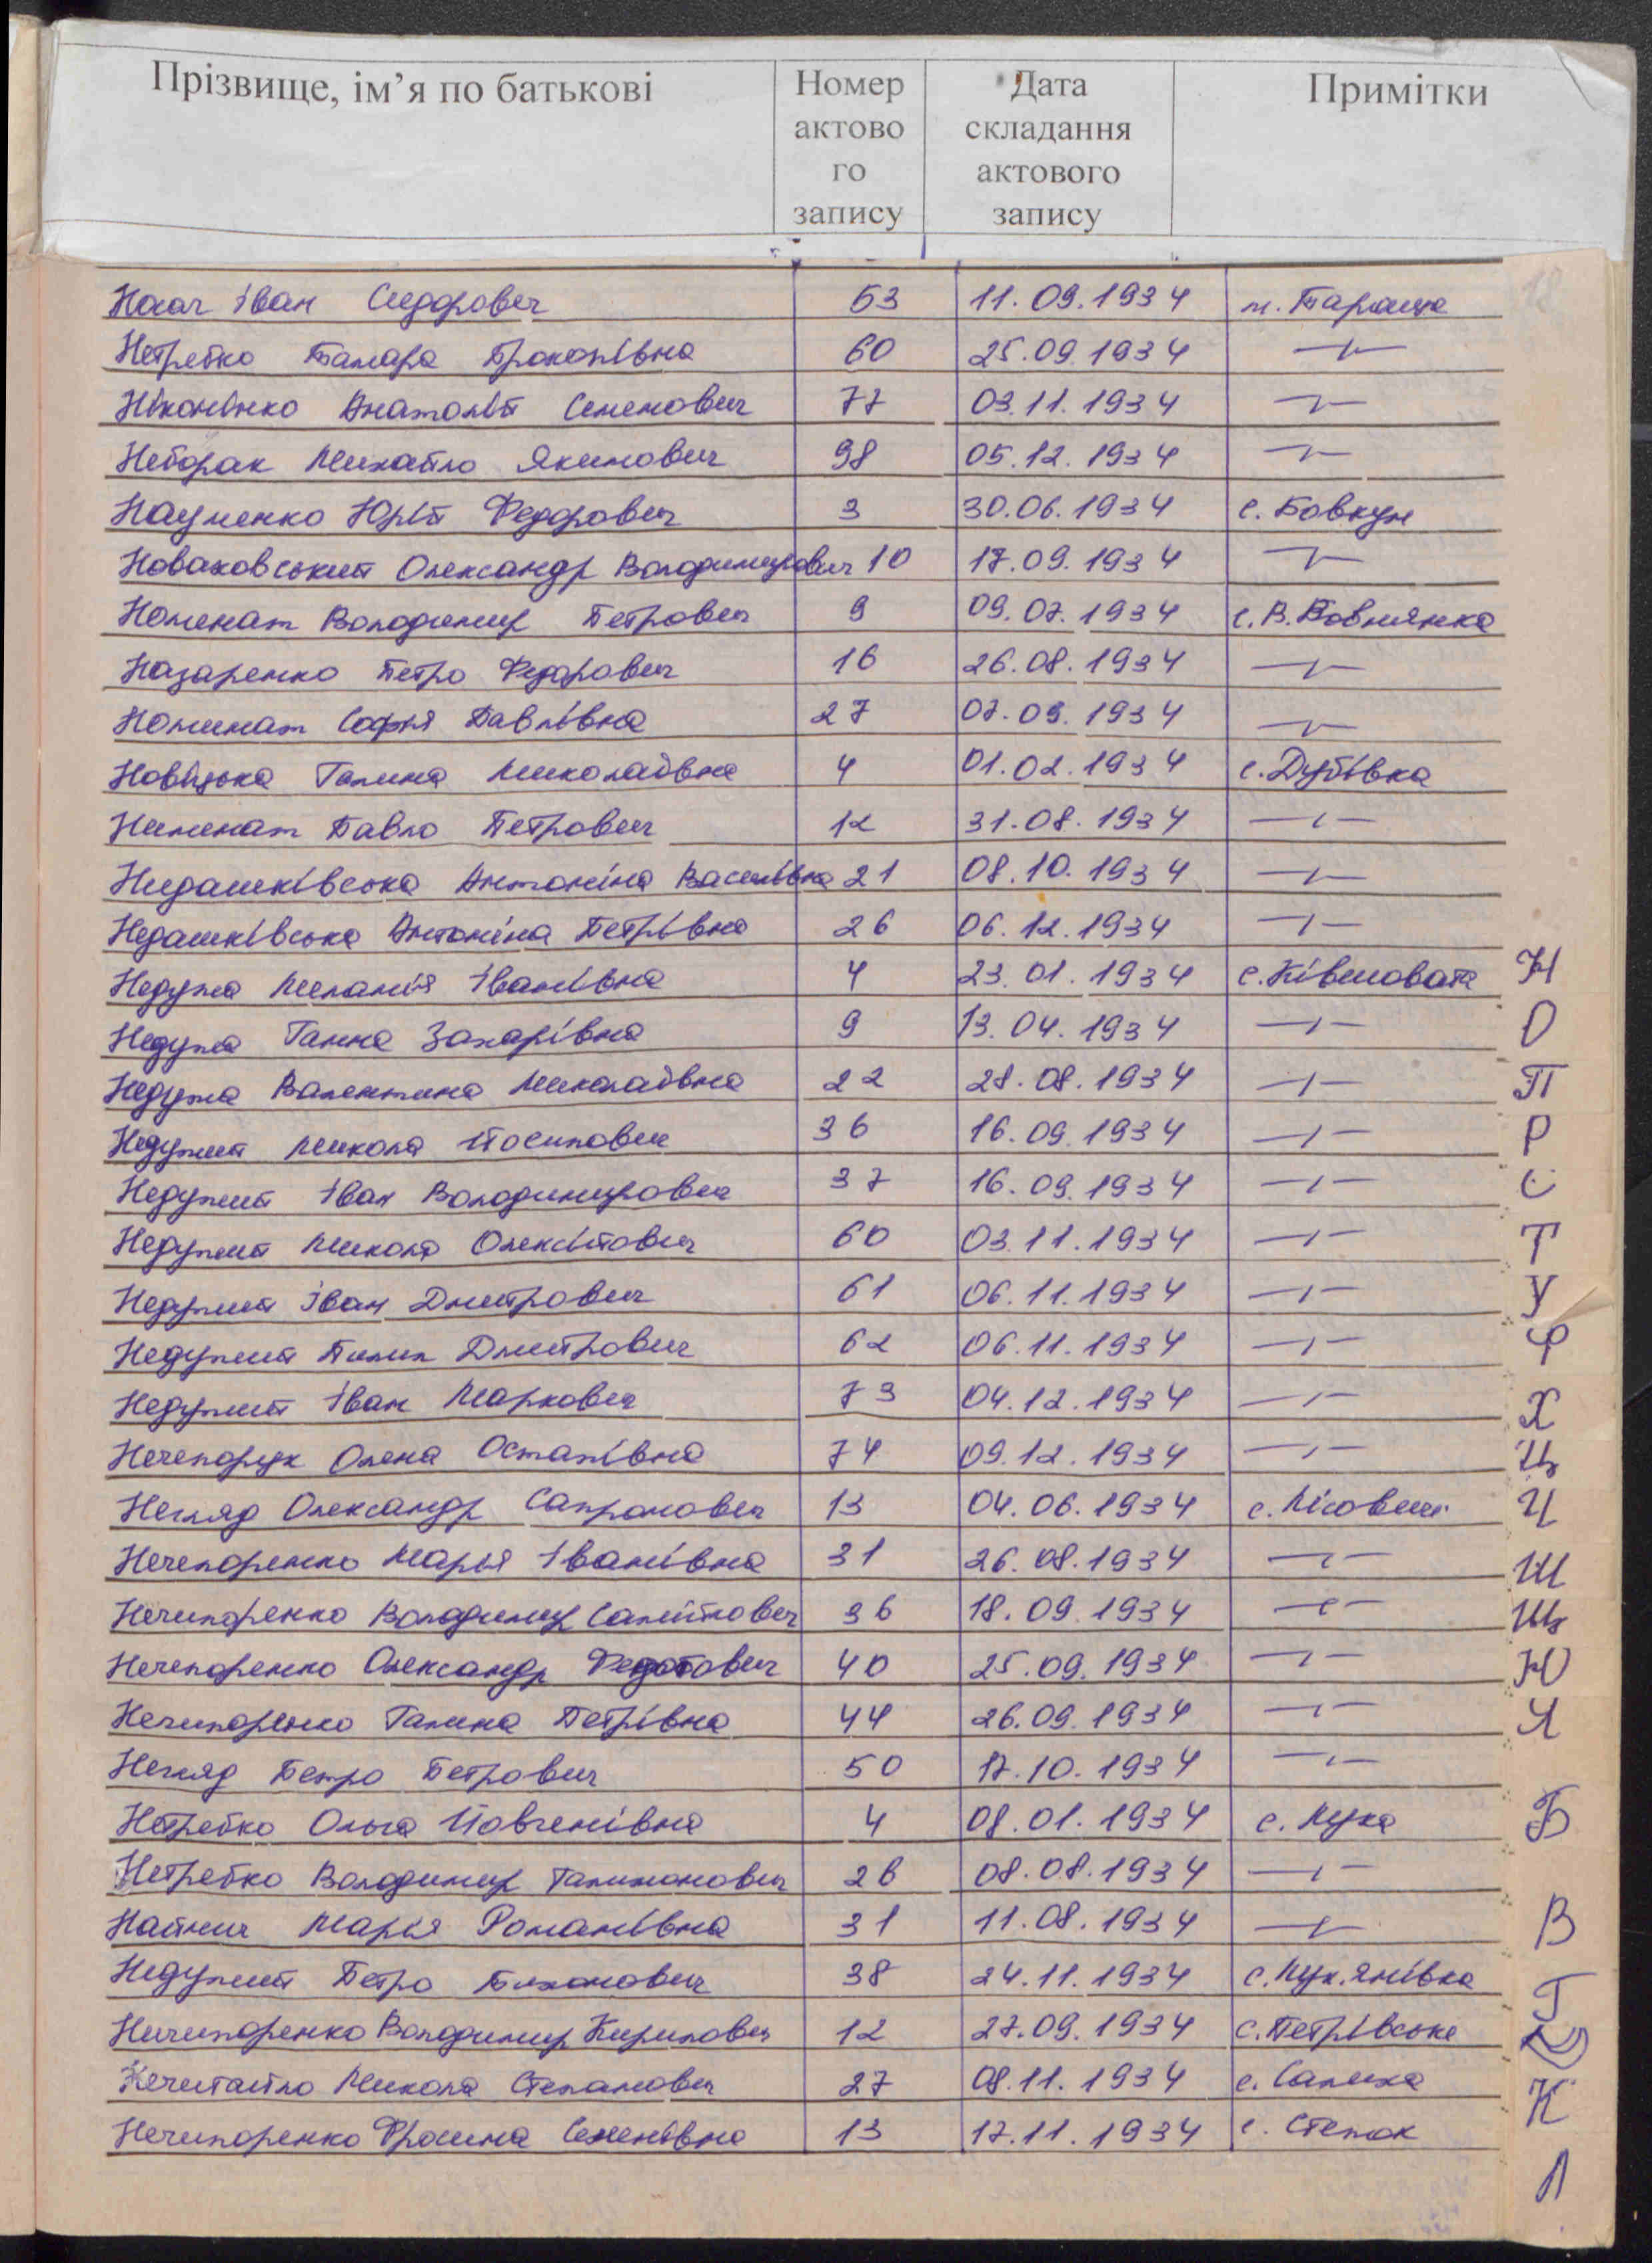 Прізвище, ім’я по батькові Номер актово го запису Дата складання актового запису Примітки
Іван Сидорович 53 11.09.1934 м. Тараща
Нетребко Тамара Прокопівна 60 25.09.1934 —〃—
Ніконінко Анатолій Семенович 77 03.11.1934 —〃—
Неборак Михайло Якимович 98 05.12.1934 —〃—
Науменко Юрій Федорович 3 30.06.1934 с. Бовкун
Новаковський Олександр Володимирович 10 17.09.1934 —〃—
Номенат Володимир Петрович 9 09.07.1934 с. В. Вовнянка
Назаренко Петро Федорович 16 26.08.1934 —〃—
Номинат Софія Павлівна 27 07.09.1934 —〃—
Новіцька Галина Миколаївна 4 01.02.1934 с. Дубівка
Нименат Павло Петрович 12 31.08.1934 —〃—
Нидашківська Антоніна Василівна 21 08.10.1934 —〃—
Недашківська Антоніна Петрівна 26 06.12.1934 —〃—
Недужа Меланія Іванівна 4 23.01.1934 с. Ківшовата
Недужа Ганна Захарівна 9 13.04.1934 —〃—
Недужа Валентина Миколаївна 22 28.08.1934 —〃—
Недужий Микола Йосипович 36 16.09.1934 —〃—
Недужий Іван Володимирович 37 16.09.1934 —〃—
Недужий Микола Олексійович 60 03.11.1934 —〃—
Недужий Іван Дмитрович 61 06.11.1934 —〃—
Недужий Пилип Дмитрович 62 06.11.1934 —〃—
Недужий Іван Маркович 73 04.12.1934 —〃—
Нечепорук Олена Остапівна 74 09.12.1934 —〃—
Негляд Олександр Сапронович 13 04.06.1934 с. Лісовичі
Нечепоренко Марія Іванівна 31 26.08.1934 —〃—
Ничипоренко Володимир Самійлович 36 18.09.1934 —〃—
Нечепоренко Олександр Федотович 40 25.09.1934 —〃—
Нечипоренко Галина Петрівна 44 26.09.1934 —〃—
Негляд Петро Петрович 50 17.10.1934 —〃—
Нетребко Ольга Йовченівна 4 08.01.1934 с. Лука
Нетребко Володимир Галимонович 26 08.08.1934 —〃—
Найчич Марія Романівна 31 11.08.1934 —〃—
Недужий Петро Тихонович 38 24.11.1934 с. Лук.янівка
Ничипоренко Володимир Кирилович 12 27.09.1934 с. Петрівське
Нечитайло Микола Степанович 27 08.11.1934 с. Салиха
Нечипоренко Фросина Семенівна 13 17.11.1934 с. Степок
Н
О
П
Р
С
Т
У
Ф
Х
Ц
Ч
Ш
Щ
Ю
Я
Б
В
Г
Д
К
Л